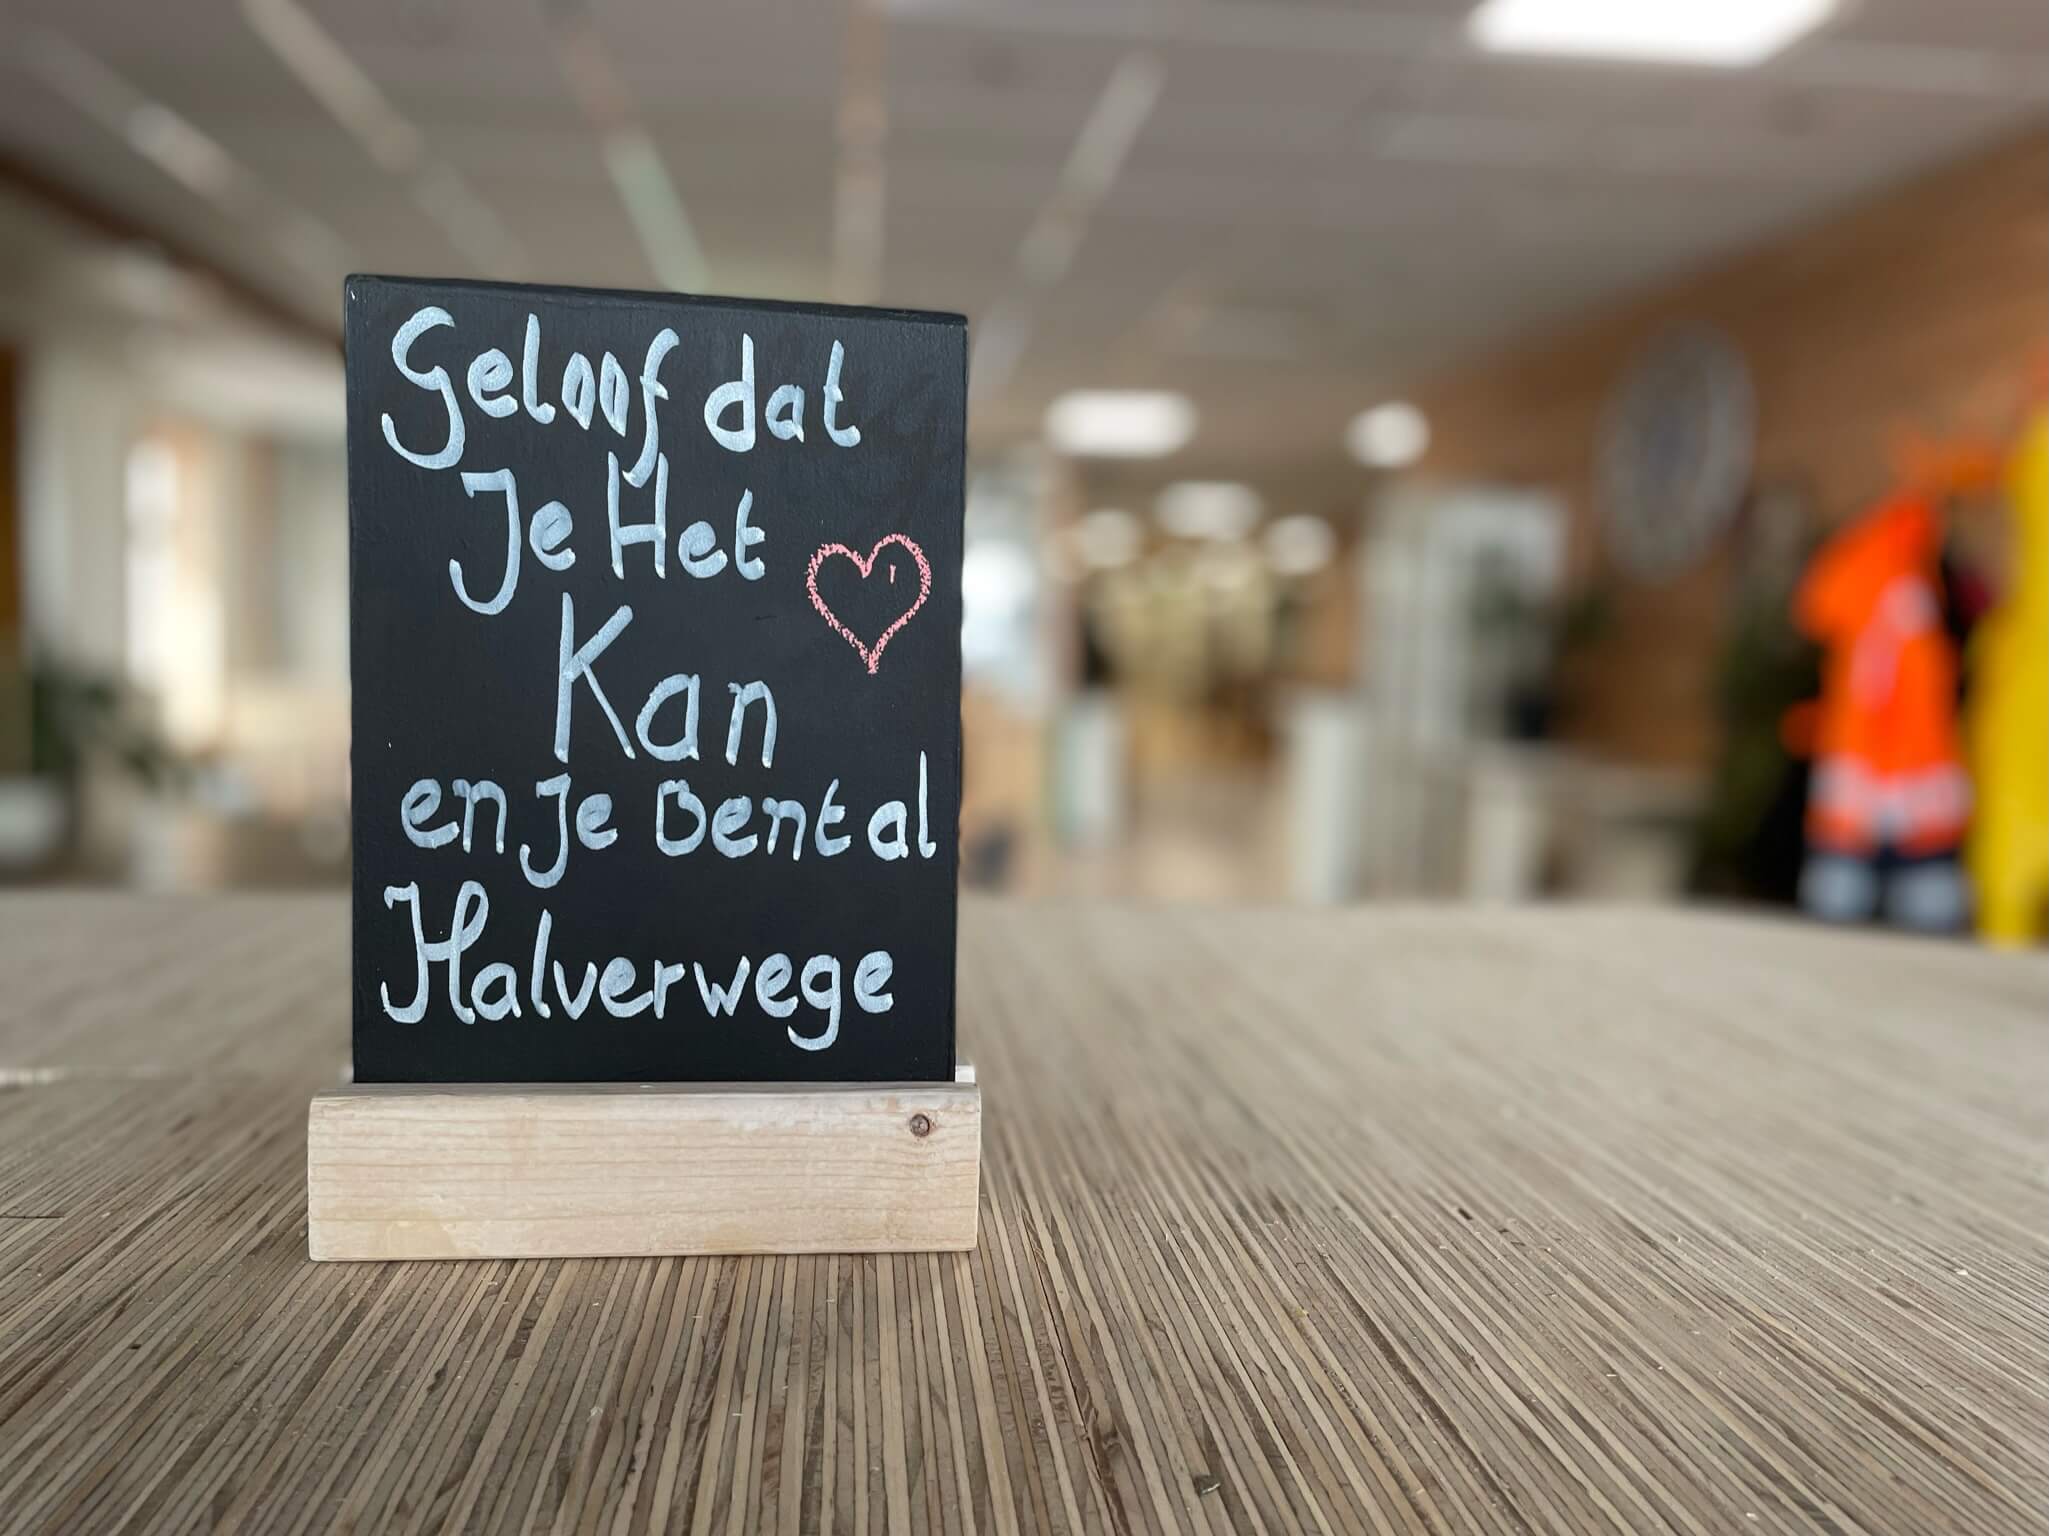 Geloof dat
Je Het
Kan
en Je Bent al
Halverwege